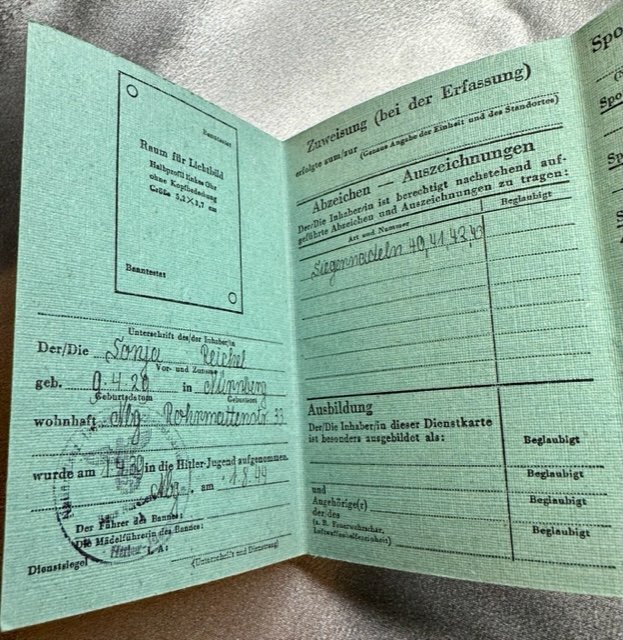 Beamtestat
Raum für Lichtbild
Halbprofil linkes Ohr
ohne Kopfbedeckung
Größe 5,2×3,7 cm
Beamtestat
Unterschrift des/der Inhaber/in
Der/Die Sonja Reichel
Vor- und Zuname
geb. 9.4.26 in Nürnberg
Geburtsdatum
wohnhaft Nbg Rohrmattenstr 33
wurde am in die Hitler-Jugend aufgenommen.
Nbg., am 1.8.44
Der Führer des Bannes:
Die Mädelführerin des Bannes:
I. A:
Dienstsiegel
(Unterschrift und Dienstrang)
Zuweisung (bei der Erfassung)
erfolgte zum/zur
(Genaue Angabe der Einheit und des Standortes)
Abzeichen — Auszeichnungen
Der/Die Inhaber/in ist berechtigt nachstehend auf-
geführte Abzeichen und Auszeichnungen zu tragen:
Art und Nummer
Beglaubigt
Siegernadeln 40,41,43,43
Ausbildung
Der/Die Inhaber/in dieser Dienstkarte
ist besonders ausgebildet als:
Beglaubigt
Beglaubigt
und
Angehörige(r)
der/des
(z. B. Feuerwehrschar,
Luftwaffenhelfereinheit)
Beglaubigt
Beglaubigt
Spo
Spo
Sp